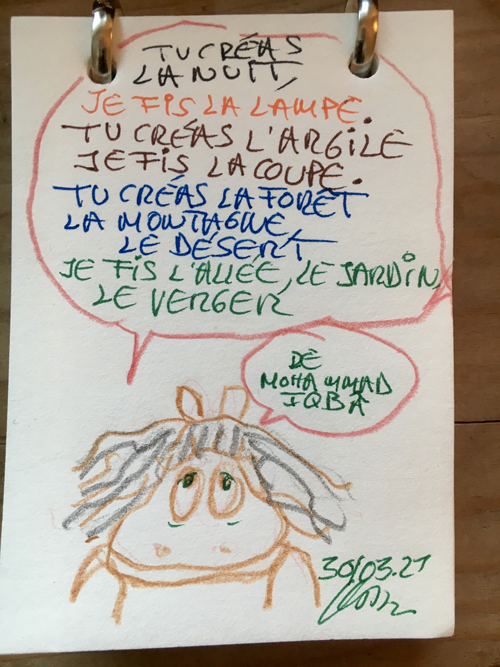 TU CRÉAS
LA NUIT,
JE FIS LA LAMPE.
TU CRÉAS L'ARGILE
JE FIS LA COUPE.
TU CRÉAS LA FORÊT
LA MONTAGNE,
LE DÉSERT
JE FIS L'ALLÉE, LE JARDIN,
LE VERGER
DE
MOHAMMAD
IQBA
30/03.21